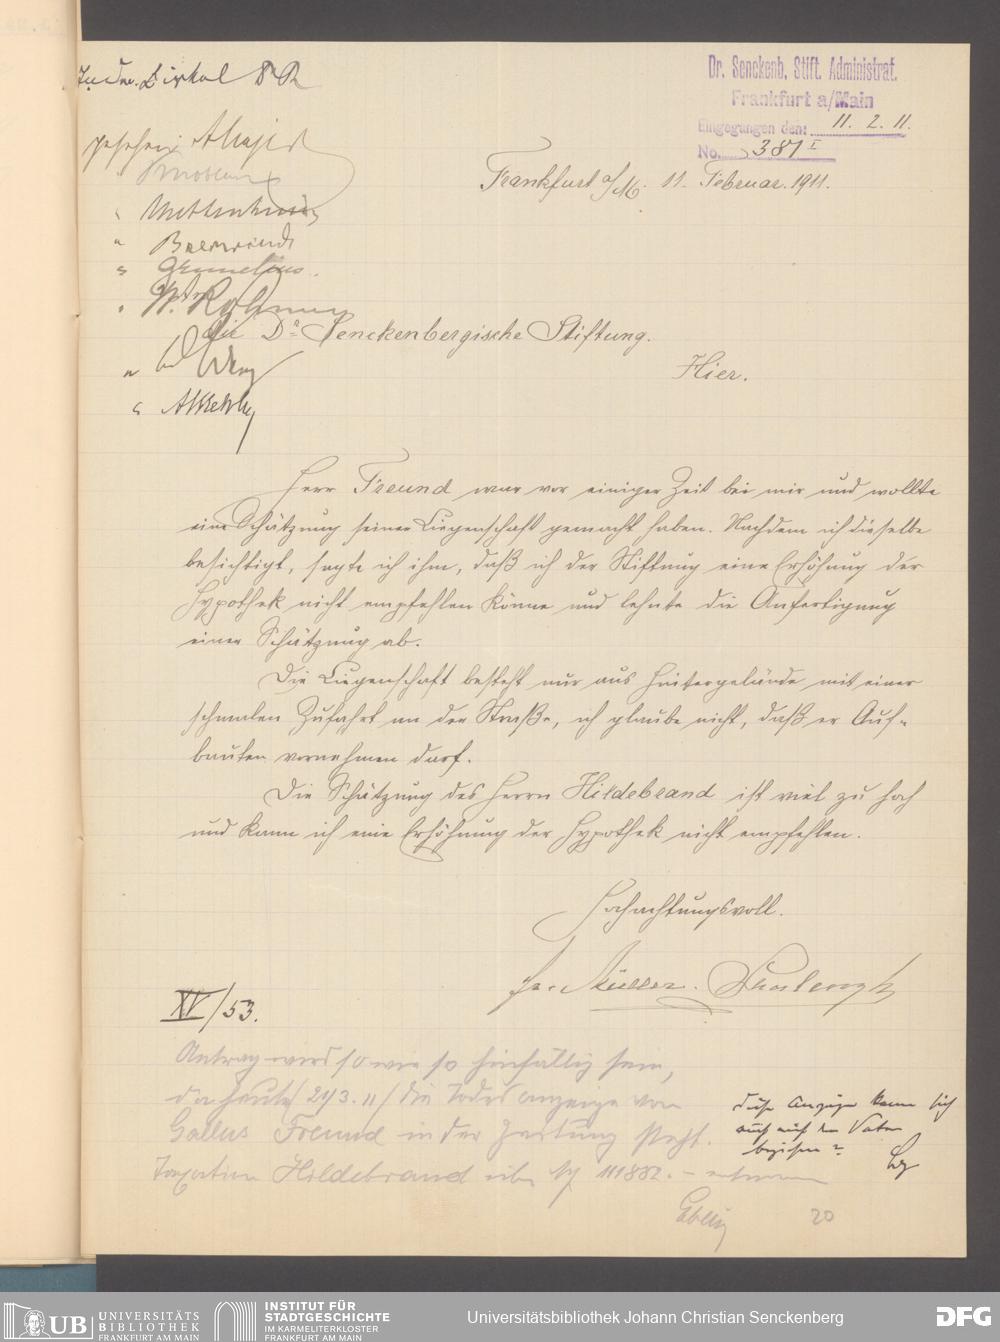 Dr. Senckenb. Stift. Administrat.
Frankfurt a/Main
Eingegangen den: 11. 2. 11.
No. 381 I
Frankfurt a/M. 11. Februar. 1911.
Die Dr. Senckenbergische Stiftung.
Hier.
Herr Freund war vor einiger Zeit bei mir und wollte
eine Schätzung seiner Liegenschaft gemacht haben. Nachdem ich dieselbe
besichtigt, sagte ich ihm, daß ich der Stiftung eine Erhöhung der
Hypothek nicht empfehlen könne und lehnte die Anfertigung
einer Schätzung ab.
Die Liegenschaft besteht nur aus Hintergelände mit einer
schmalen Zufahrt an der Straße, ich glaube nicht, daß er Auf-
bauten vornehmen darf.
Die Schätzung des Herrn Hildebrand ist viel zu hoch
und kann ich eine Erhöhung der Hypothek nicht empfehlen.
Hochachtungsvoll.
Müller.
XV/53.
Antrag wird so wie so hinfällig sein,
da heute 29/3. 11/ die Todesanzeige von
Gallus Freund in der Zeitung steht.
diese Anzeige kann sich
auch auf den Vater
beziehen?
Taxation Hildebrand über 111832.-
20
UB UNIVERSITÄTS
BIBLIOTHEK
FRANKFURT AM MAIN
INSTITUT FÜR
STADTGESCHICHTE
IM KARMELITERKLOSTER
FRANKFURT AM MAIN
Universitätsbibliothek Johann Christian Senckenberg
DFG